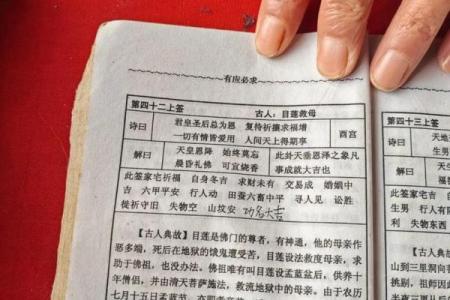 有应必求
第四十二上签 古人：目莲救母
诗曰 君皇圣后总为恩 复待祈禳求福增 酉宫
一切有情皆爱用 人间天上得期亨
解曰 天垂恩降 始终莫忘 此卦天垂恩泽之象凡
晨昏礼佛 可宜烧香 事成就大吉也
此签家宅祈福 自身冬吉 求财未有 交易成 婚姻中
吉 六甲平安 行人动 田蚕六畜中平 寻人见 讼胜
徙祈守旧 失物空 山坟安 功名大吉
【古人典故】目莲是佛门的尊者，有神通，他的母亲作
恶多端，死后在地狱的饿鬼遭受苦，目莲设法救度母亲，求
助于佛祖，也没办法。佛祖唯有叫目莲设孟蓝盆，供养十
年僧侣，并由清天菩萨施法，救流地狱中的母亲。由于农历
第四十三上签
诗曰 天地
生男
解曰
此签家宅
生男 行人
利 失物东西
【古人典故
山到三里洞
挑剔，担师因